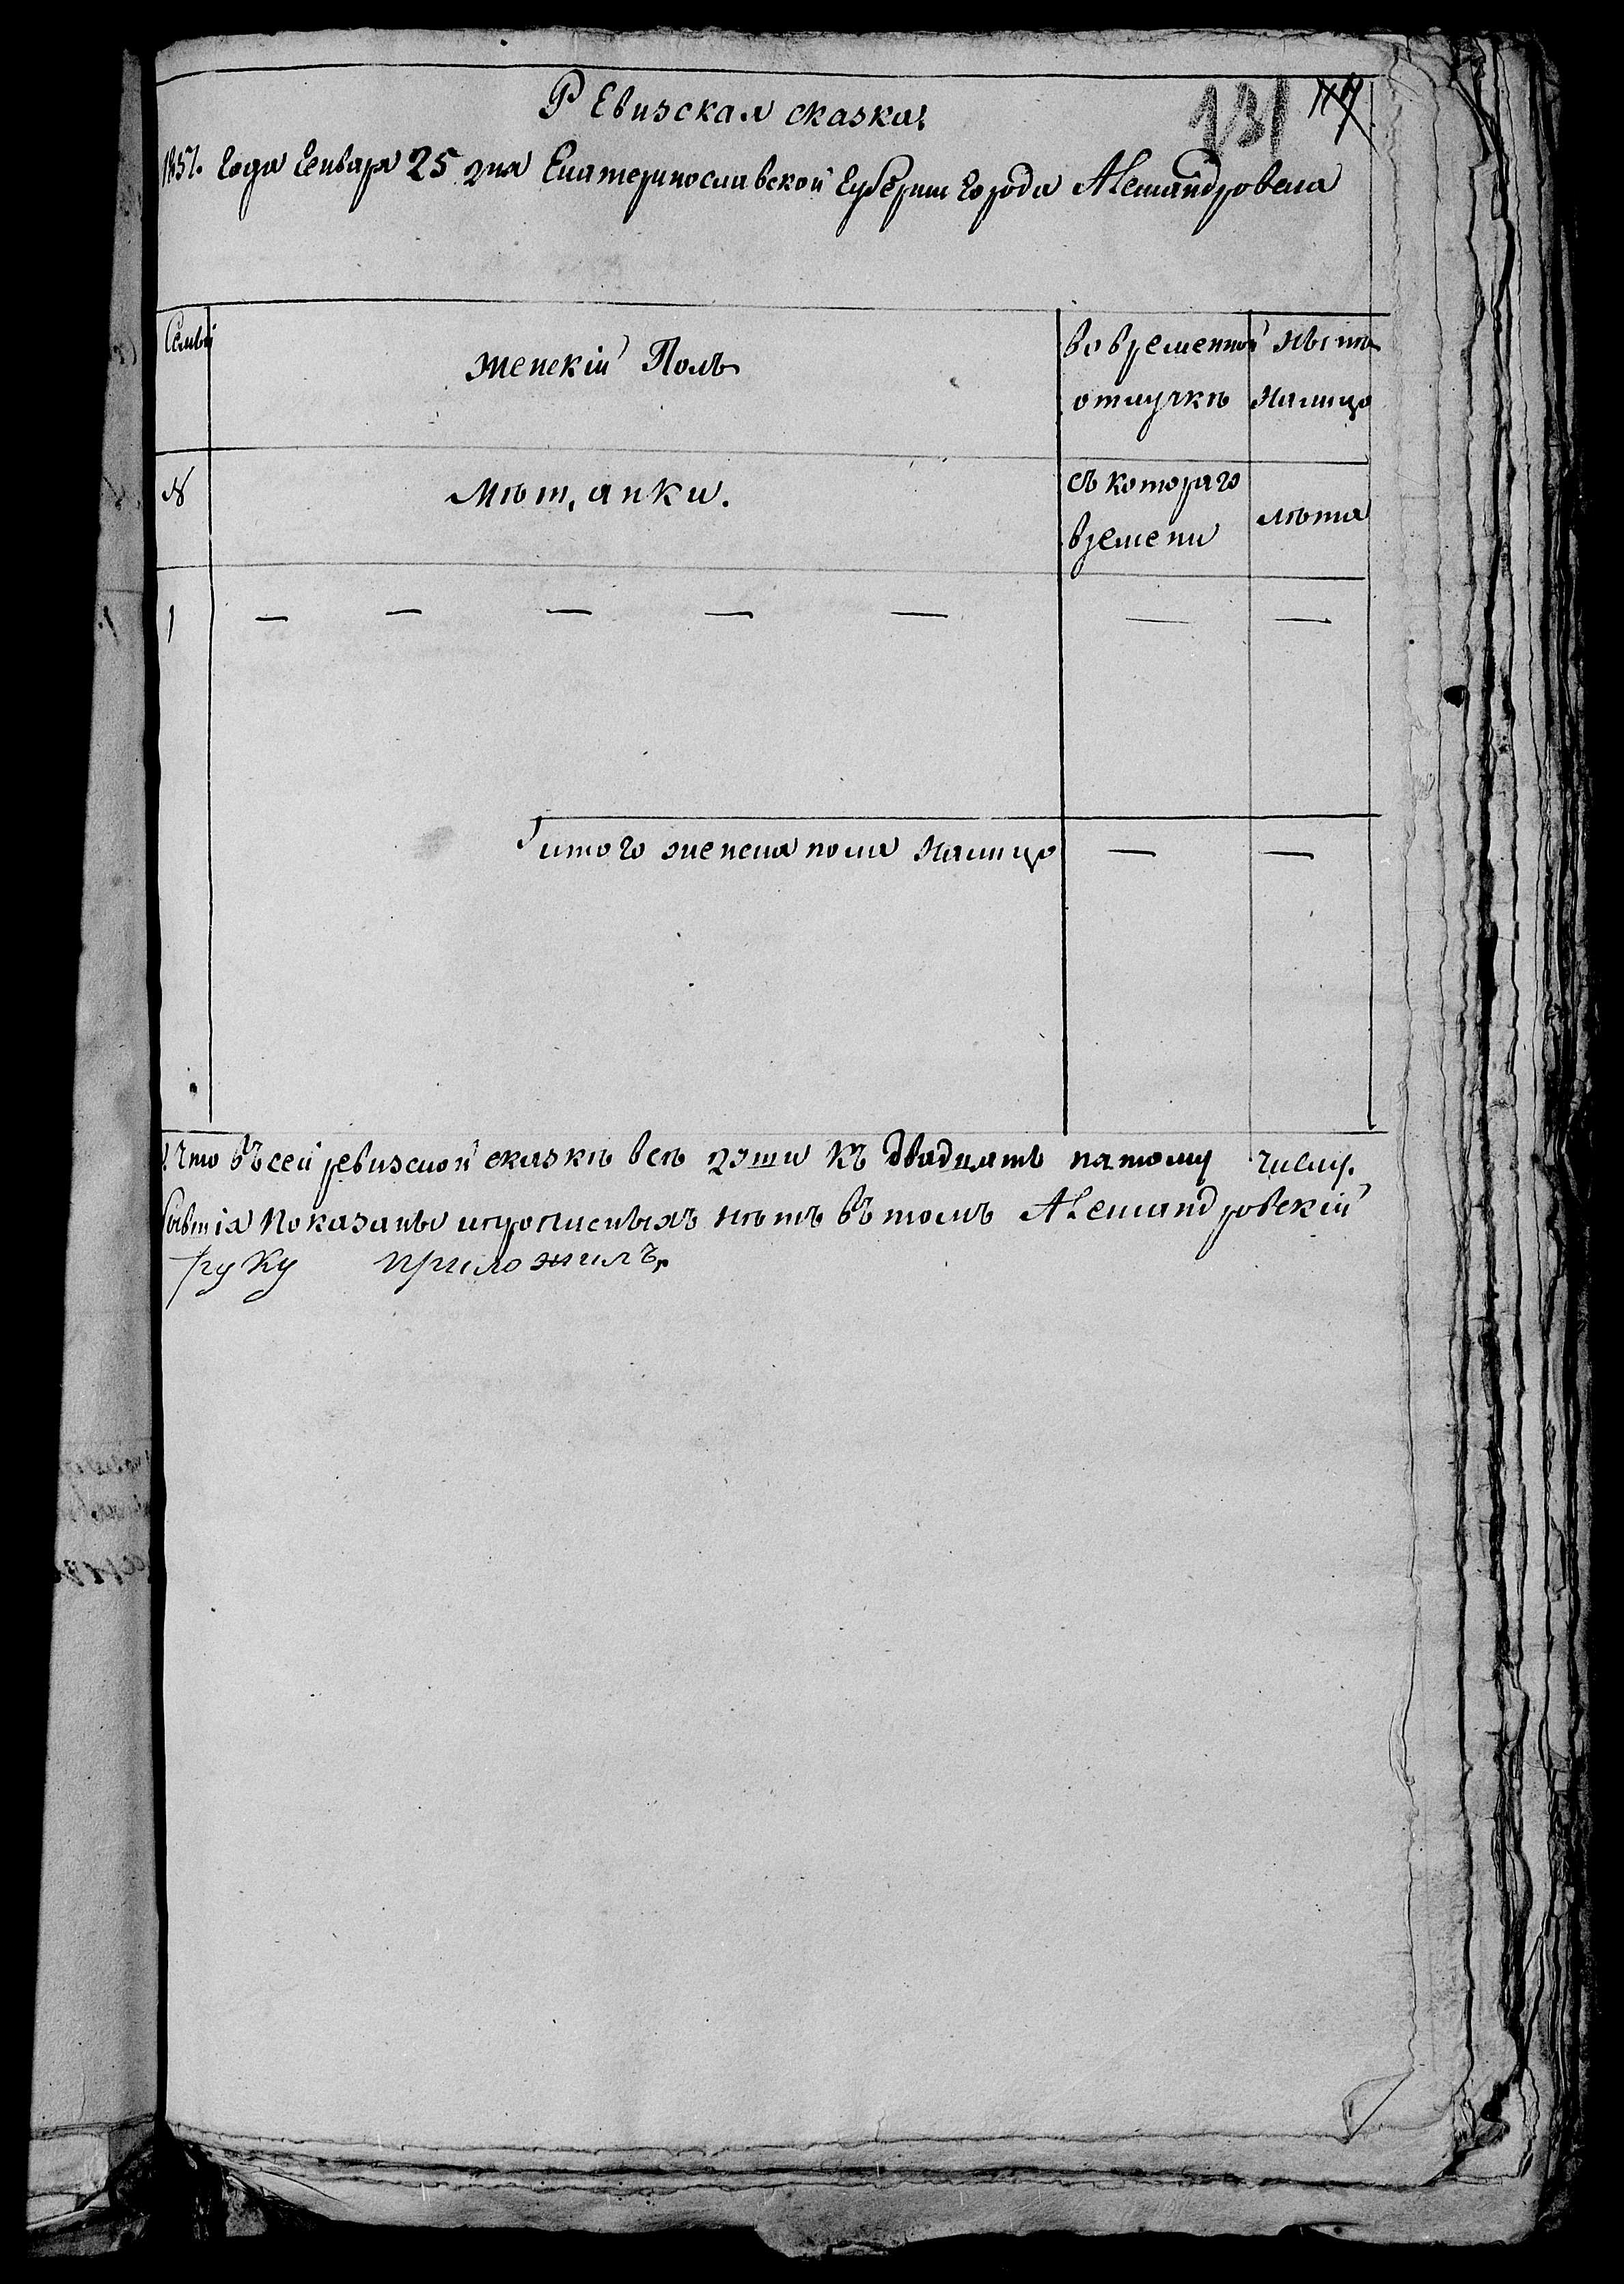 Ревизская сказка
131 117
1857. года генваря 25 дня Екатеринославской губернии города Александровска
Семьи
женский Полъ
во временной отлучке
ныне на лицо
№
Мѣщанки.
съ котораго времени
лѣта
1 — — — — — — —
итого женска пола на лицо — —
Что въ сей ревизской сказкѣ всѣ души къ двадцать пятому числу.
показаны и прописныхъ нѣтъ въ томъ Александровский
руку приложилъ,